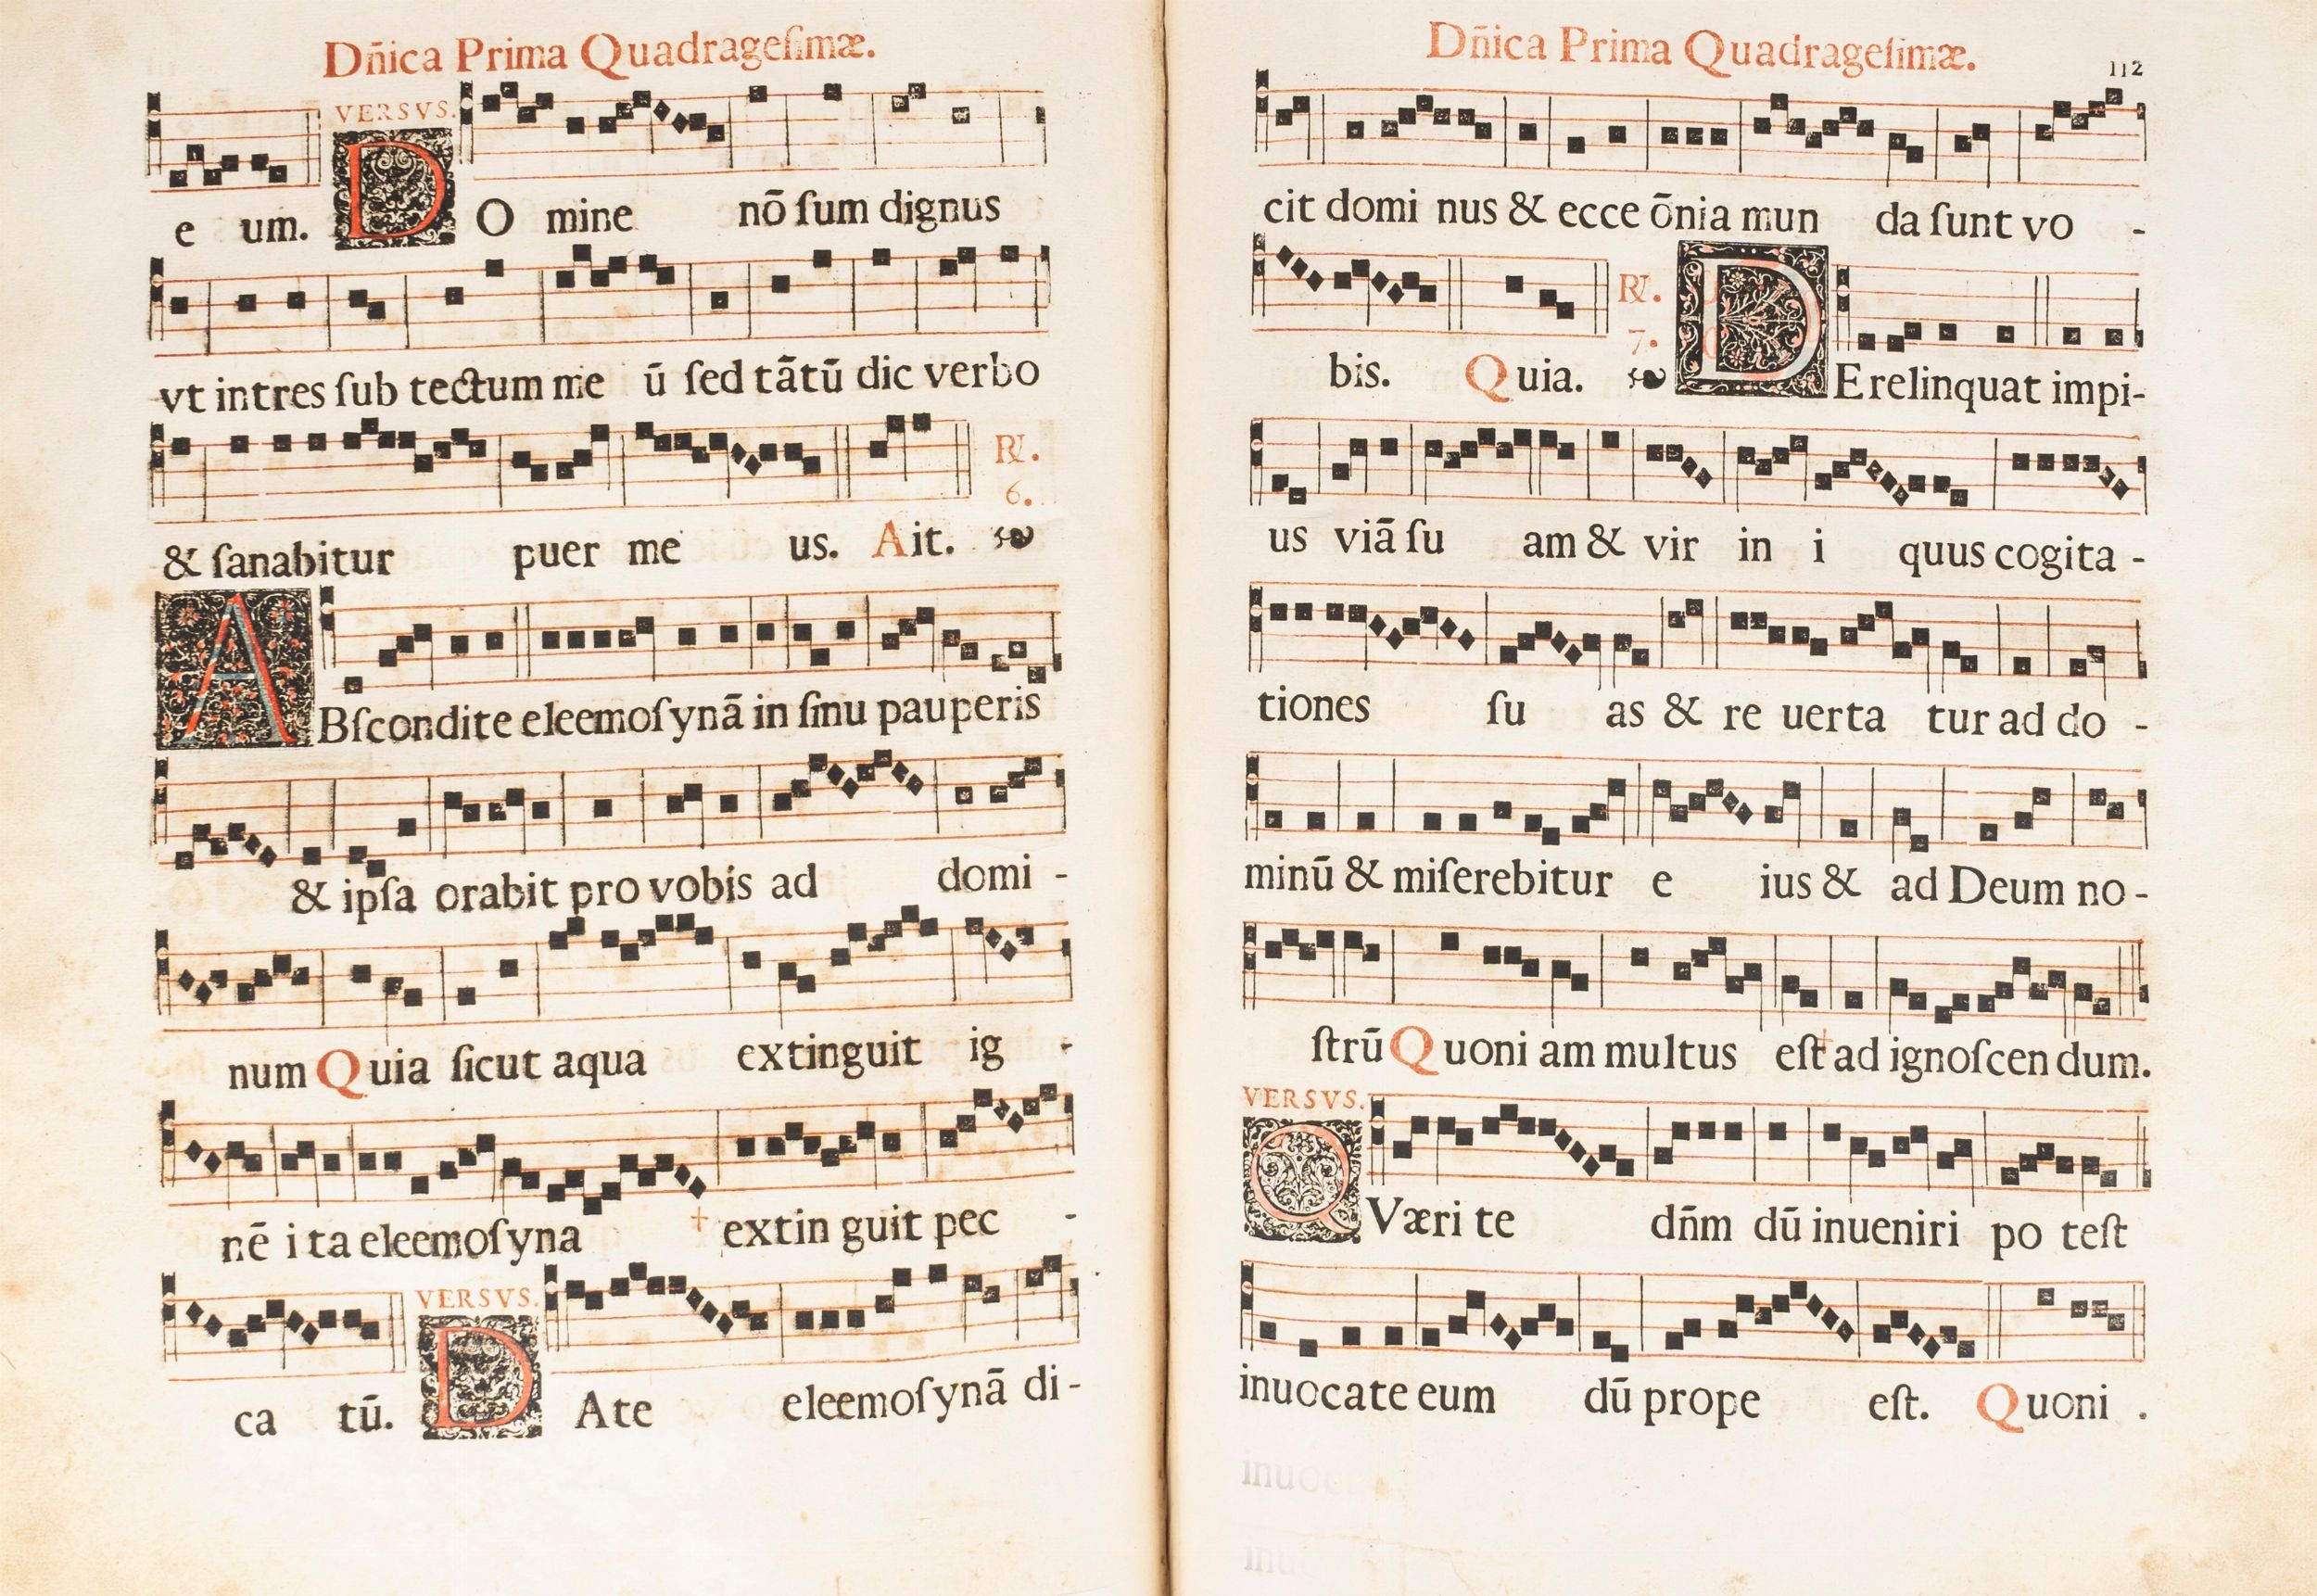 Dñica Prima Quadrageſimæ.
VERSVS.
e um. DO mine nō ſum dignus
vt intres ſub tectum me ū ſed tātū dic verbo
& ſanabitur puer me us. Ait. ℟.
6.
ABſcondite eleemoſynā in ſinu pauperis
& ipſa orabit pro vobis ad domi -
num Quia ſicut aqua extinguit ig -
nē i ta eleemoſyna † extin guit pec -
VERSVS.
ca tū. DAte eleemoſynā di-
Dñica Prima Quadrageſimæ.
112
cit domi nus & ecce ōnia mun da ſunt vo -
℟.
7.
bis. Quia. DErelinquat impi-
us viā ſu am & vir in i quus cogita -
tiones ſu as & re uerta tur ad do -
minū & miſerebitur e ius & ad Deum no -
ſtrū Quoni am multus eſt † ad ignoſcen dum.
VERSVS.
QVæri te dñm dū inueniri po teſt
inuocate eum dū prope eſt. Quoni .